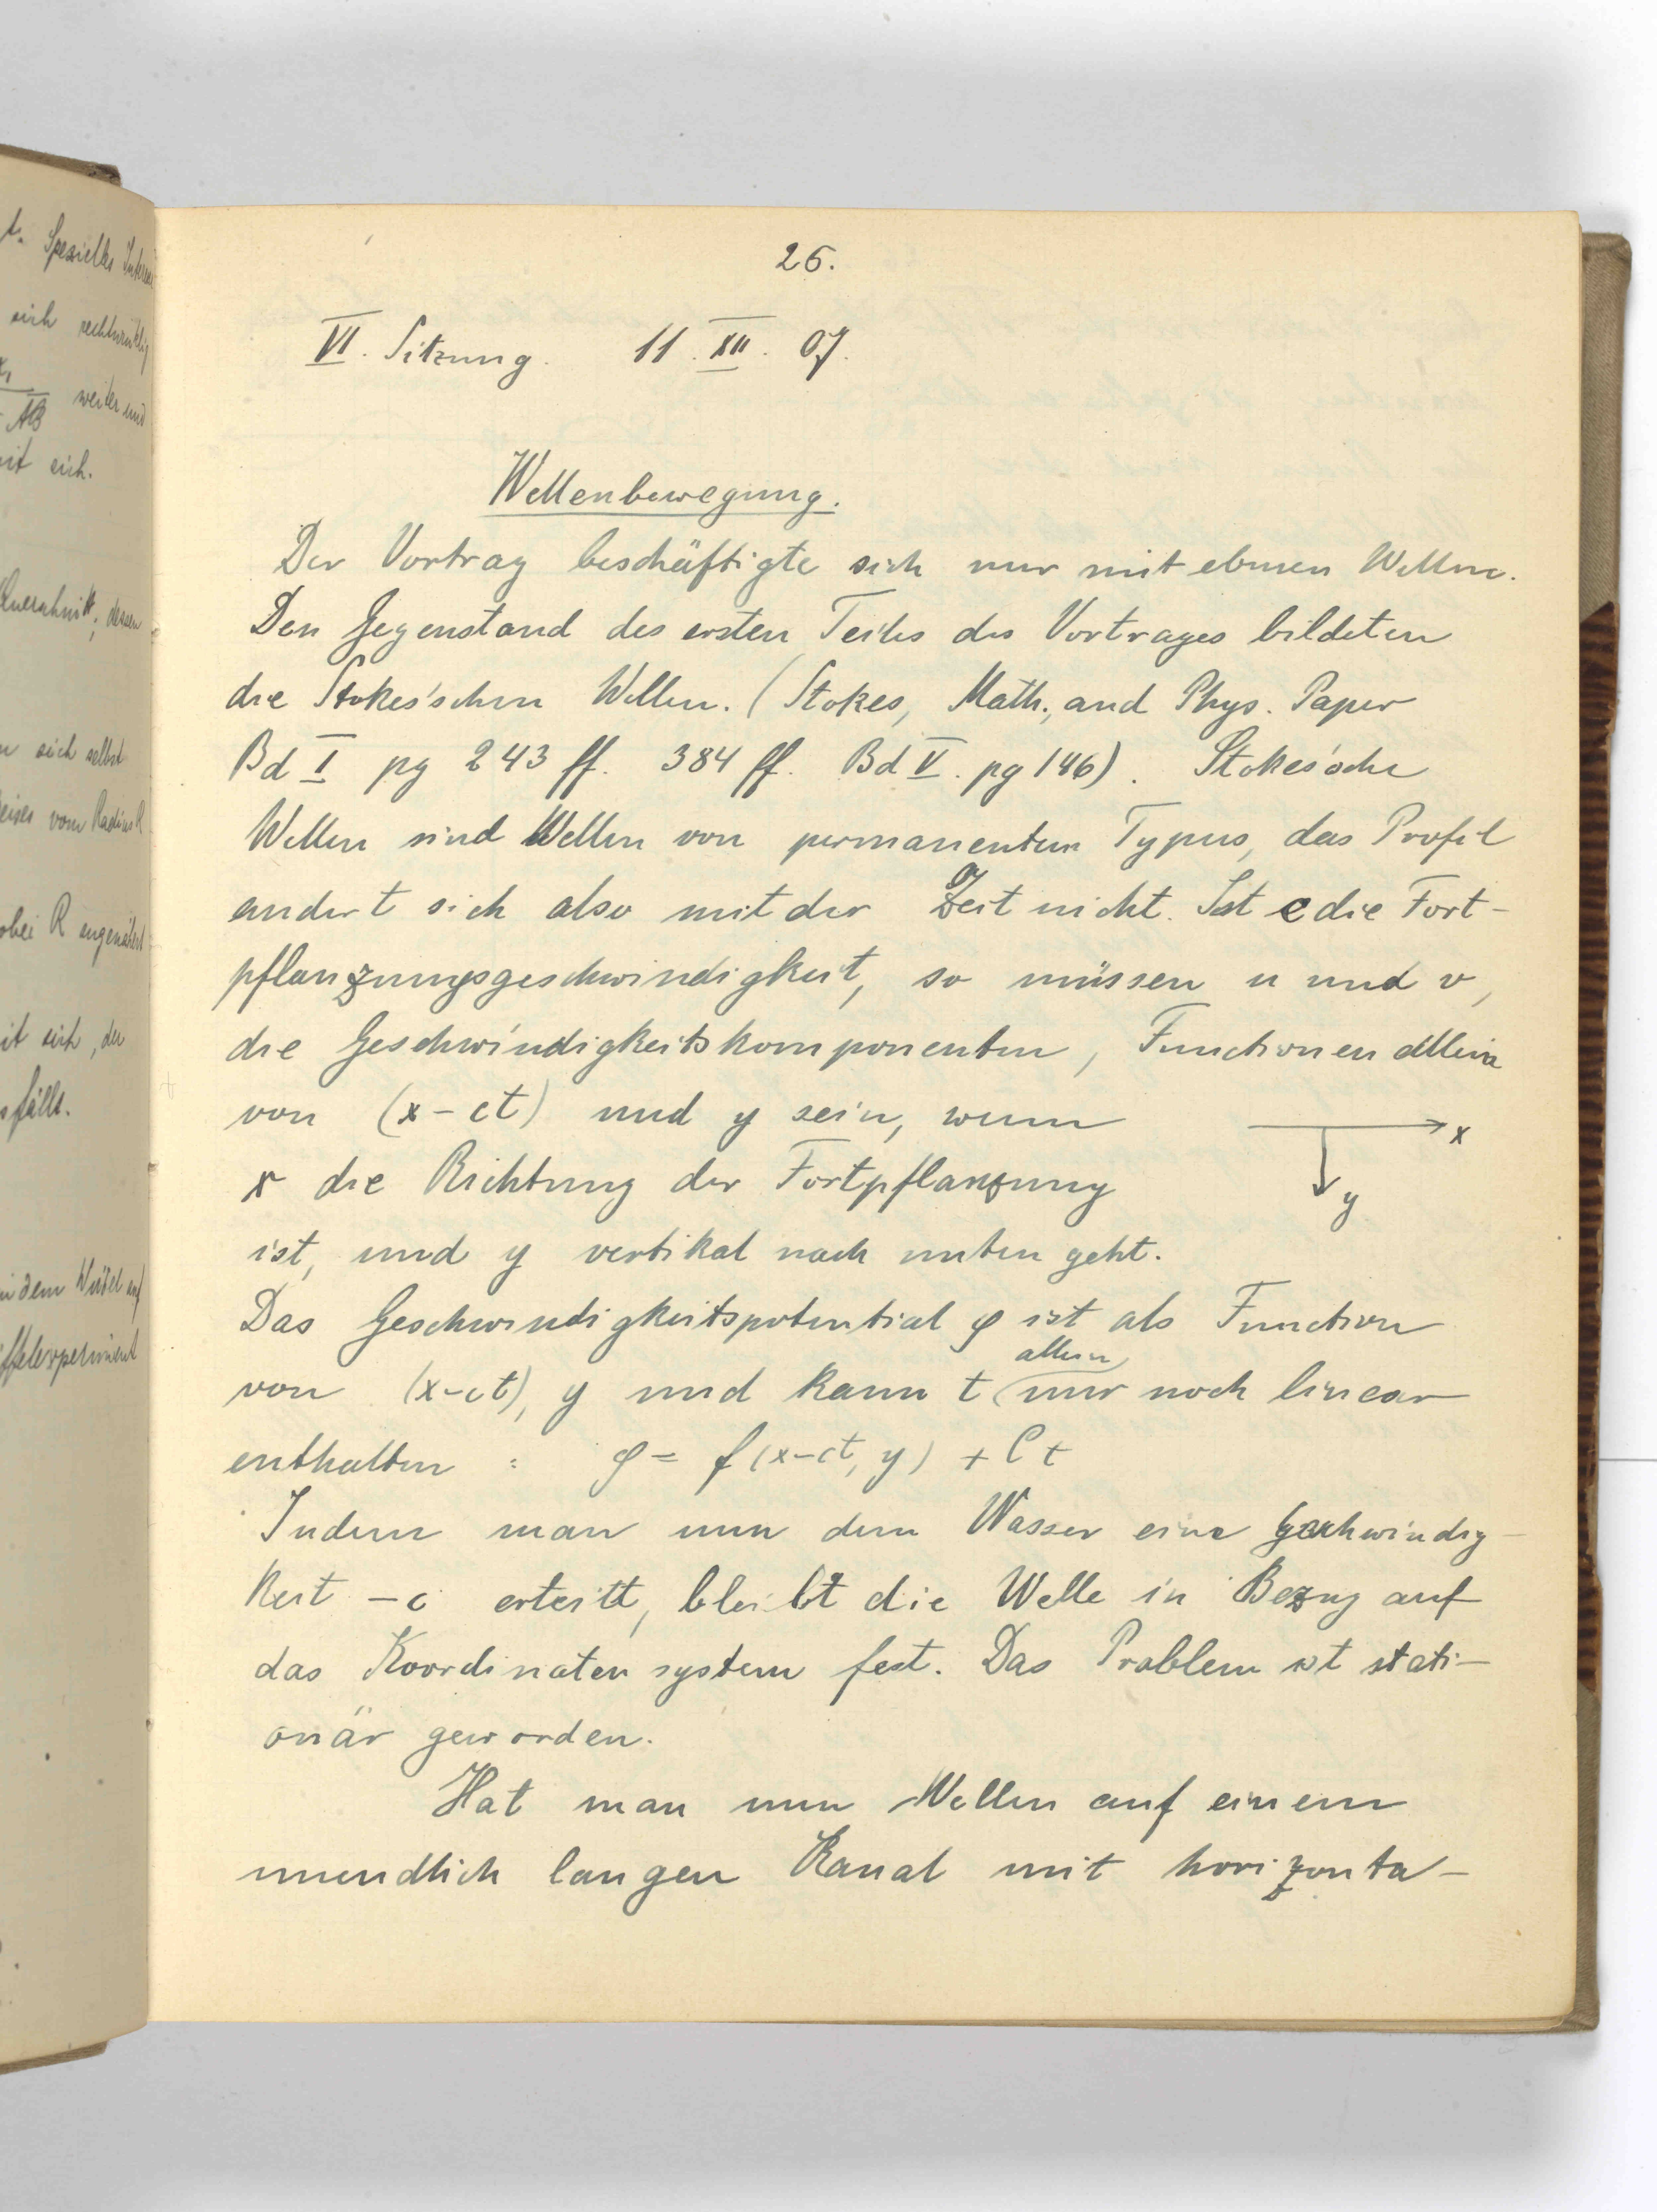 t. Spezielles
sich rechtwinklig
weiter und
AB
mit sich.
Querschnitt; dessen
sich selbst
Kreises vom Radius R
wobei R
mit sich, der
fällt.
in dem Wirbel auf
experiment
26.
VI. Sitzung. 11. XII. 07.
Wellenbewegung.
Der Vortrag beschäftigte sich nur mit ebenen Wellen.
Den Gegenstand des ersten Teiles des Vortrages bildeten
die Stokes'schen Wellen. (Stokes, Math., and Phys. Paper
Bd I pg 243 ff. 384 ff. Bd V. pg 146). Stokes'sche
Wellen sind Wellen von permanentem Typus, das Profil
andert sich also mit der Zeit nicht. Ist c die Fort-
pflanzungsgeschwindigkeit, so müssen u und v,
die Geschwindigkeitskomponenten, Functionen allein
von (x-ct) und y sein, wenn
x
x die Richtung der Fortpflanzung
y
ist, und y vertikal nach unten geht.
Das Geschwindigkeitspotential φ ist als Function
allein
von (x-ct), y und kann t nur noch linear
enthalten : φ = f(x-ct, y) + Ct
Indem man nun dem Wasser eine Geschwindig-
keit -c erteilt, bleibt die Welle in Bezug auf
das Koordinaten system fest. Das Problem ist stati-
onär geworden.
Hat man nun Wellen auf einem
unendlich langen Kanal mit horizonta-